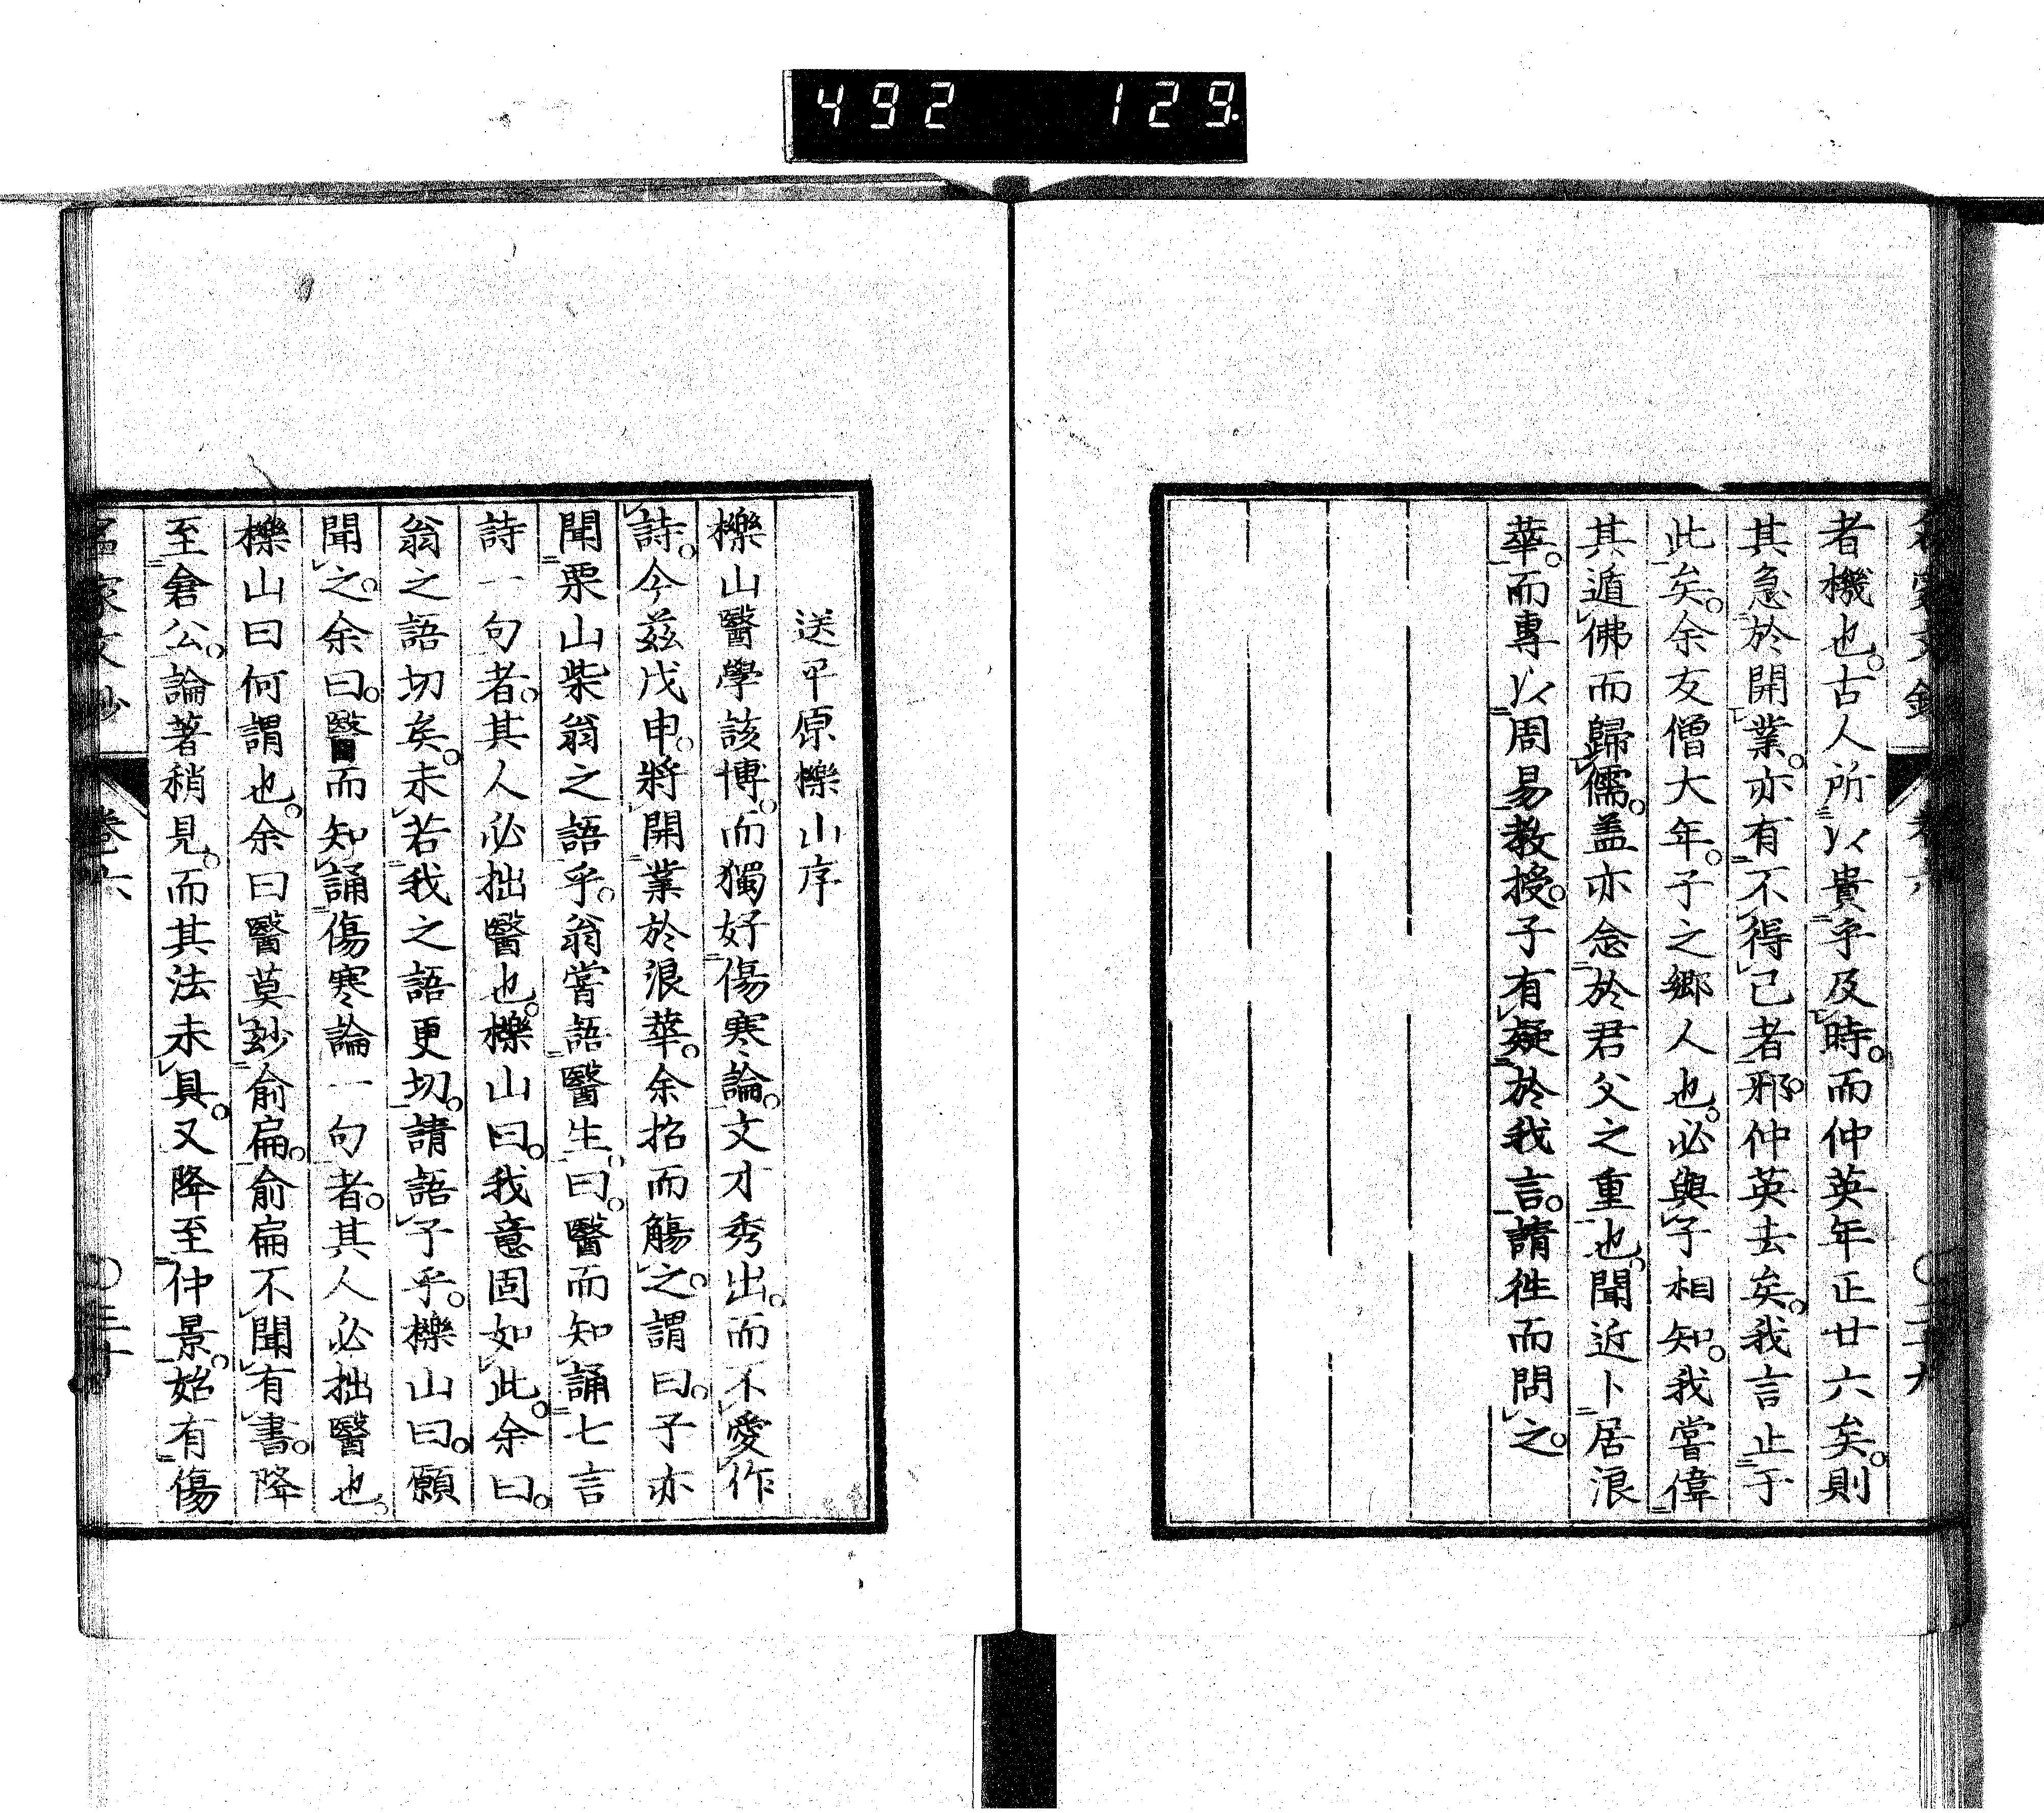 492 129.
者機也。古人所以貴乎及時。而仲英年正廿六矣。則
其急於開業。亦有不得已者邪。仲英去矣。我言止于
此矣。余友僧大年。子之鄉人也。必與子相知。我嘗偉
其遁佛而歸儒。盖亦念於君父之重也。聞近卜居浪
華。而專以周易教授。子有疑於我言。請徃而問之。
送平原櫟山序
櫟山醫學該博。而獨好傷寒論。文才秀出。而不愛作
詩。今茲戊申。將開業於浪華。余招而觴之。謂曰。子亦
聞栗山柴翁之語乎。翁嘗語醫生。曰。醫而知誦七言
詩一句者。其人必拙醫也。櫟山曰。我意固如此。余曰。
翁之語切矣。未若我之語更切。請語子乎。櫟山曰。願
聞之。余曰。醫而知誦傷寒論一句者。其人必拙醫也。
櫟山曰何謂也。余曰醫莫妙俞扁。俞扁不聞有書。降
至倉公。論著稍見。而其法未具。又降至仲景。始有傷
名家文鈔 卷六 〇三十